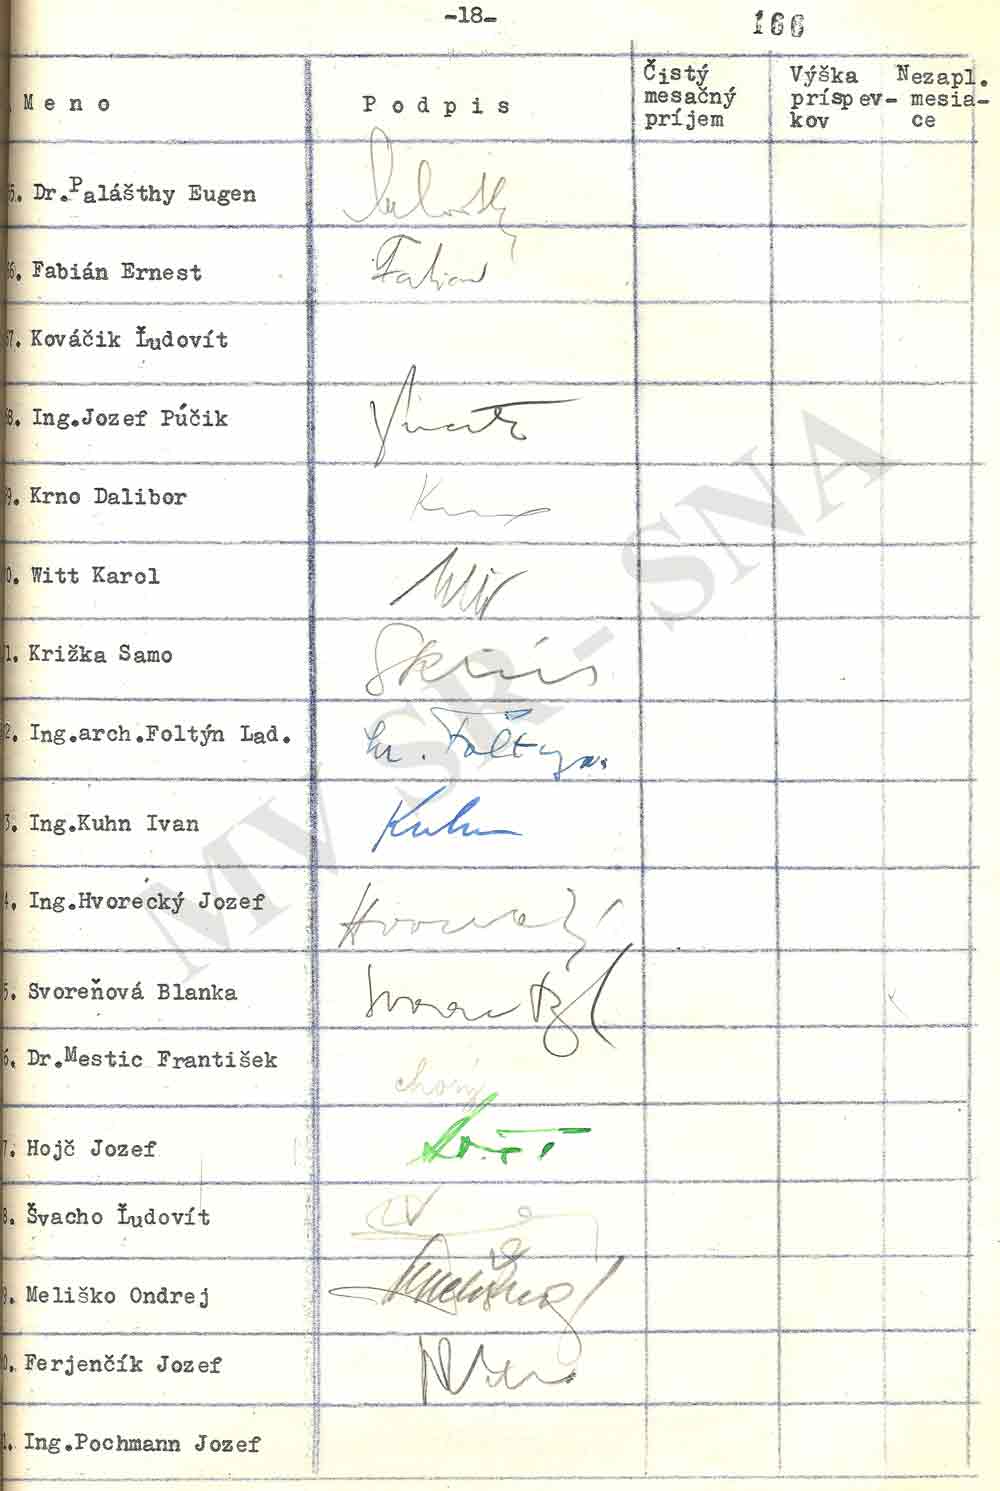 -18-
166
Meno
Podpis
Čistý mesačný príjem
Výška príspev-kov
Nezapl. mesia-ce
5. Dr.Palášthy Eugen
6. Fabián Ernest Fabian
7. Kováčik Ľudovít
8. Ing.Jozef Púčik
9. Krno Dalibor
0. Witt Karol
1. Križka Samo
2. Ing.arch.Foltýn Lad.
3. Ing.Kuhn Ivan Kuhn
4. Ing.Hvorecký Jozef
5. Svoreňová Blanka
6. Dr.Mestic František chorý
7. Hojč Jozef
8. Švacho Ľudovít
9. Meliško Ondrej
0. Ferjenčík Jozef
1. Ing.Pochmann Jozef
MV SR - SNA